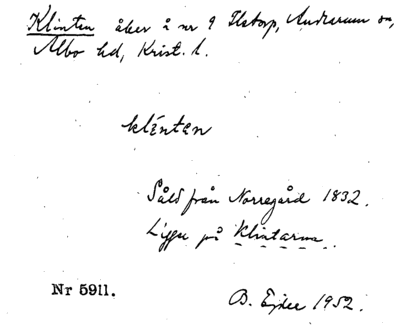 Klinten åker å nr 9 Ilstorp, Andrarum sn,
Albo hd, Krist. l.
klintan
Såld från Norregård 1832.
Ligger på Klintarna.
Nr 5911.
B. Ejder 1952.